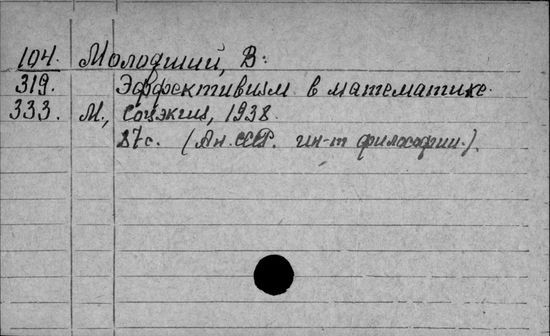 104. Молодший, В:
319. Эффективизм в математике.
333. М., Соцэкгиз, 1938.
87с. (Ан. СССР. ин-т философии.).